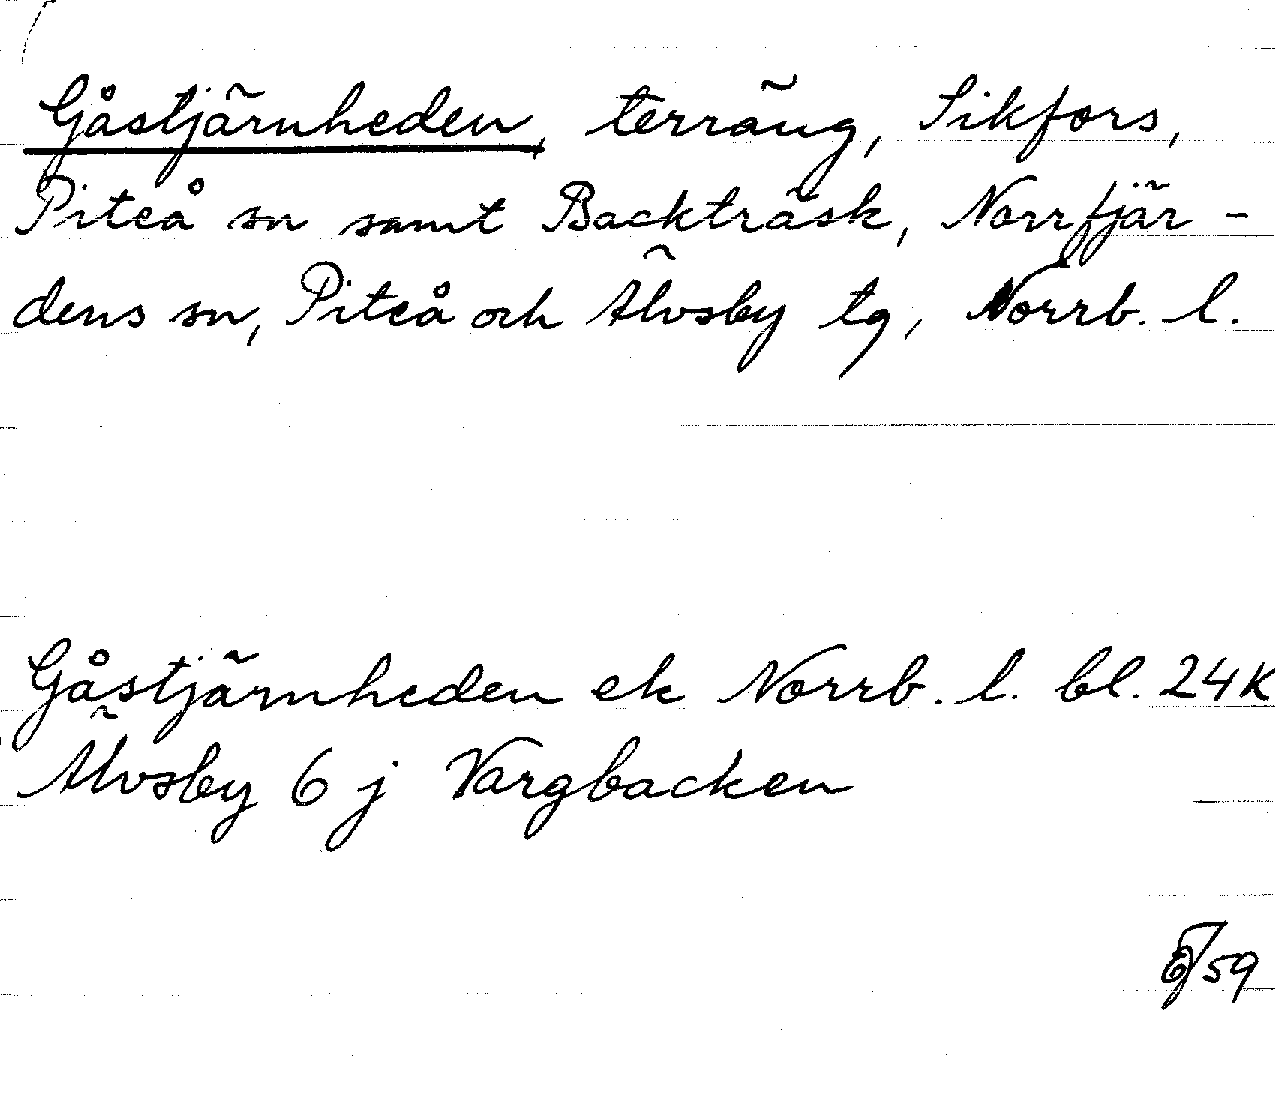 Gåstjärnheden, terräng, Sikfors,
Piteå sn samt Backträsk, Norrfjär-
dens sn, Piteå och Älvsby tg, Norrb. l.
Gåstjärnheden ek Norrb. l. bl. 24K
Älvsby 6 j Vargbacken
/59